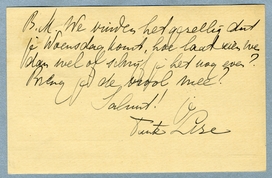 B.M. We vinden het gezellig dat
je Woensdag komt, hoe laat zien we
dan wel of schrijf je het nog even?
Breng je de viool mee?
Salut! je
Tante Lise